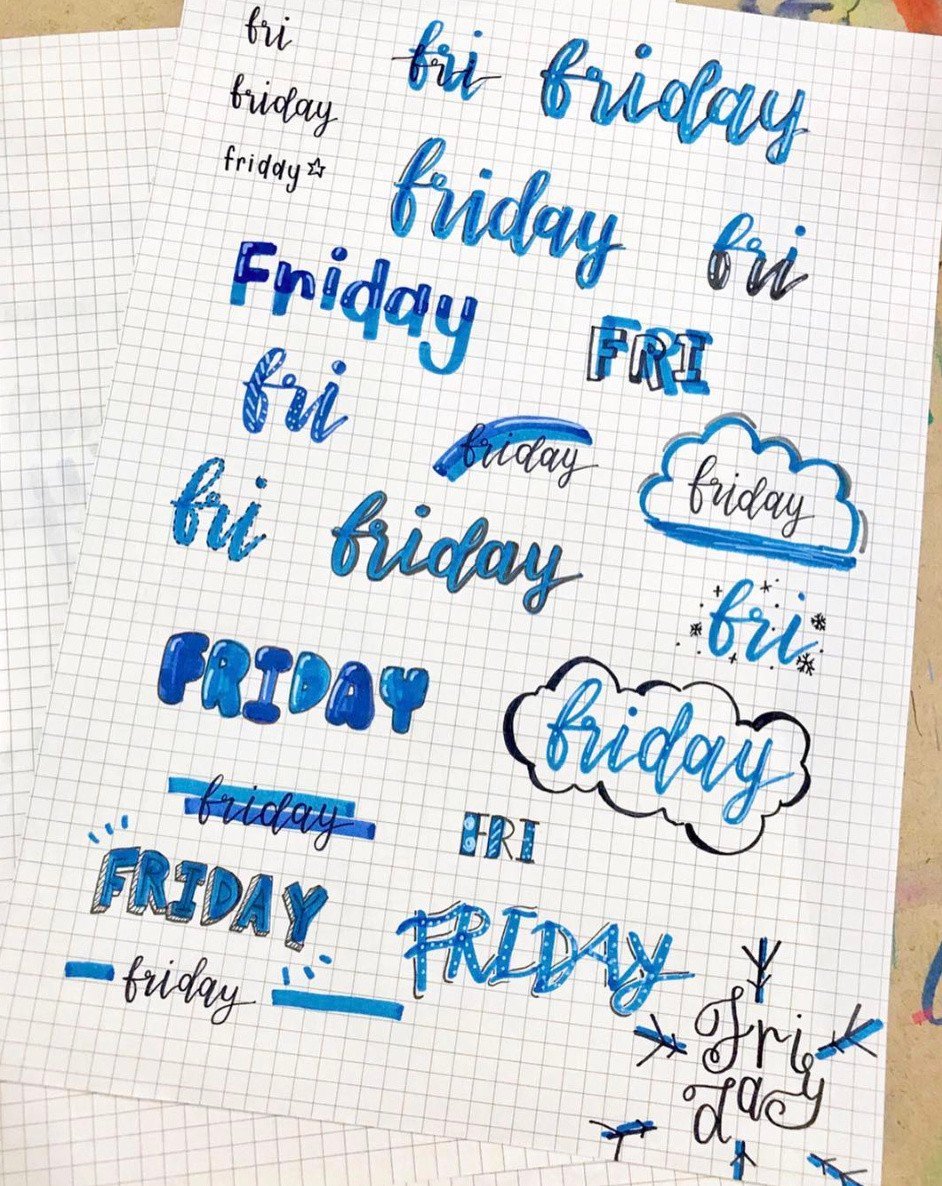 fri
fri friday
friday
friday☆
friday
fri
Friday
FRI
fri
friday
friday
fri
friday
fri
FRIDAY
friday
friday
FRI
FRIDAY
FRIDAY
friday
Fri
day